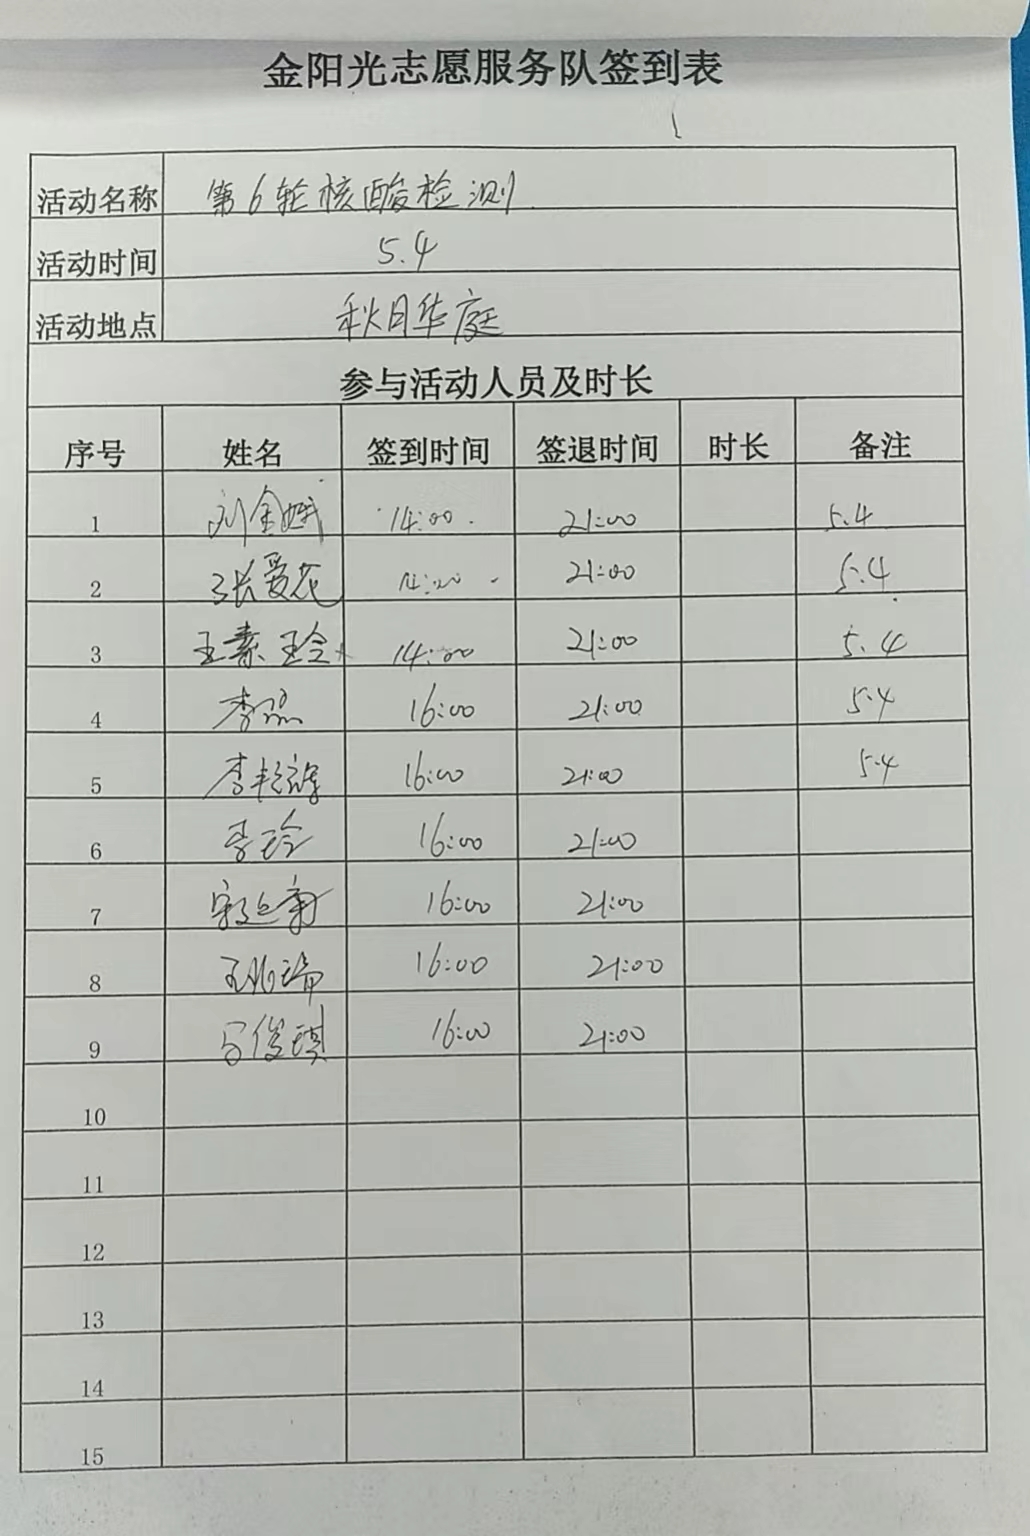 金阳光志愿服务队签到表
活动名称 第6轮核酸检测
活动时间 5.4
活动地点 秋月华庭
参与活动人员及时长
序号 姓名 签到时间 签退时间 时长 备注
1 刘金娥 14:00 21:00 5.4
2 张爱花 14:00 21:00 5.4
3 王素玲 14:00 21:00 5.4
4 李 16:00 21:00 5.4
5 李 16:00 21:00 5.4
6 李玲 16:00 21:00
7 16:00 21:00
8 王 瑞 16:00 21:00
9 马俊琪 16:00 21:00
10
11
12
13
14
15